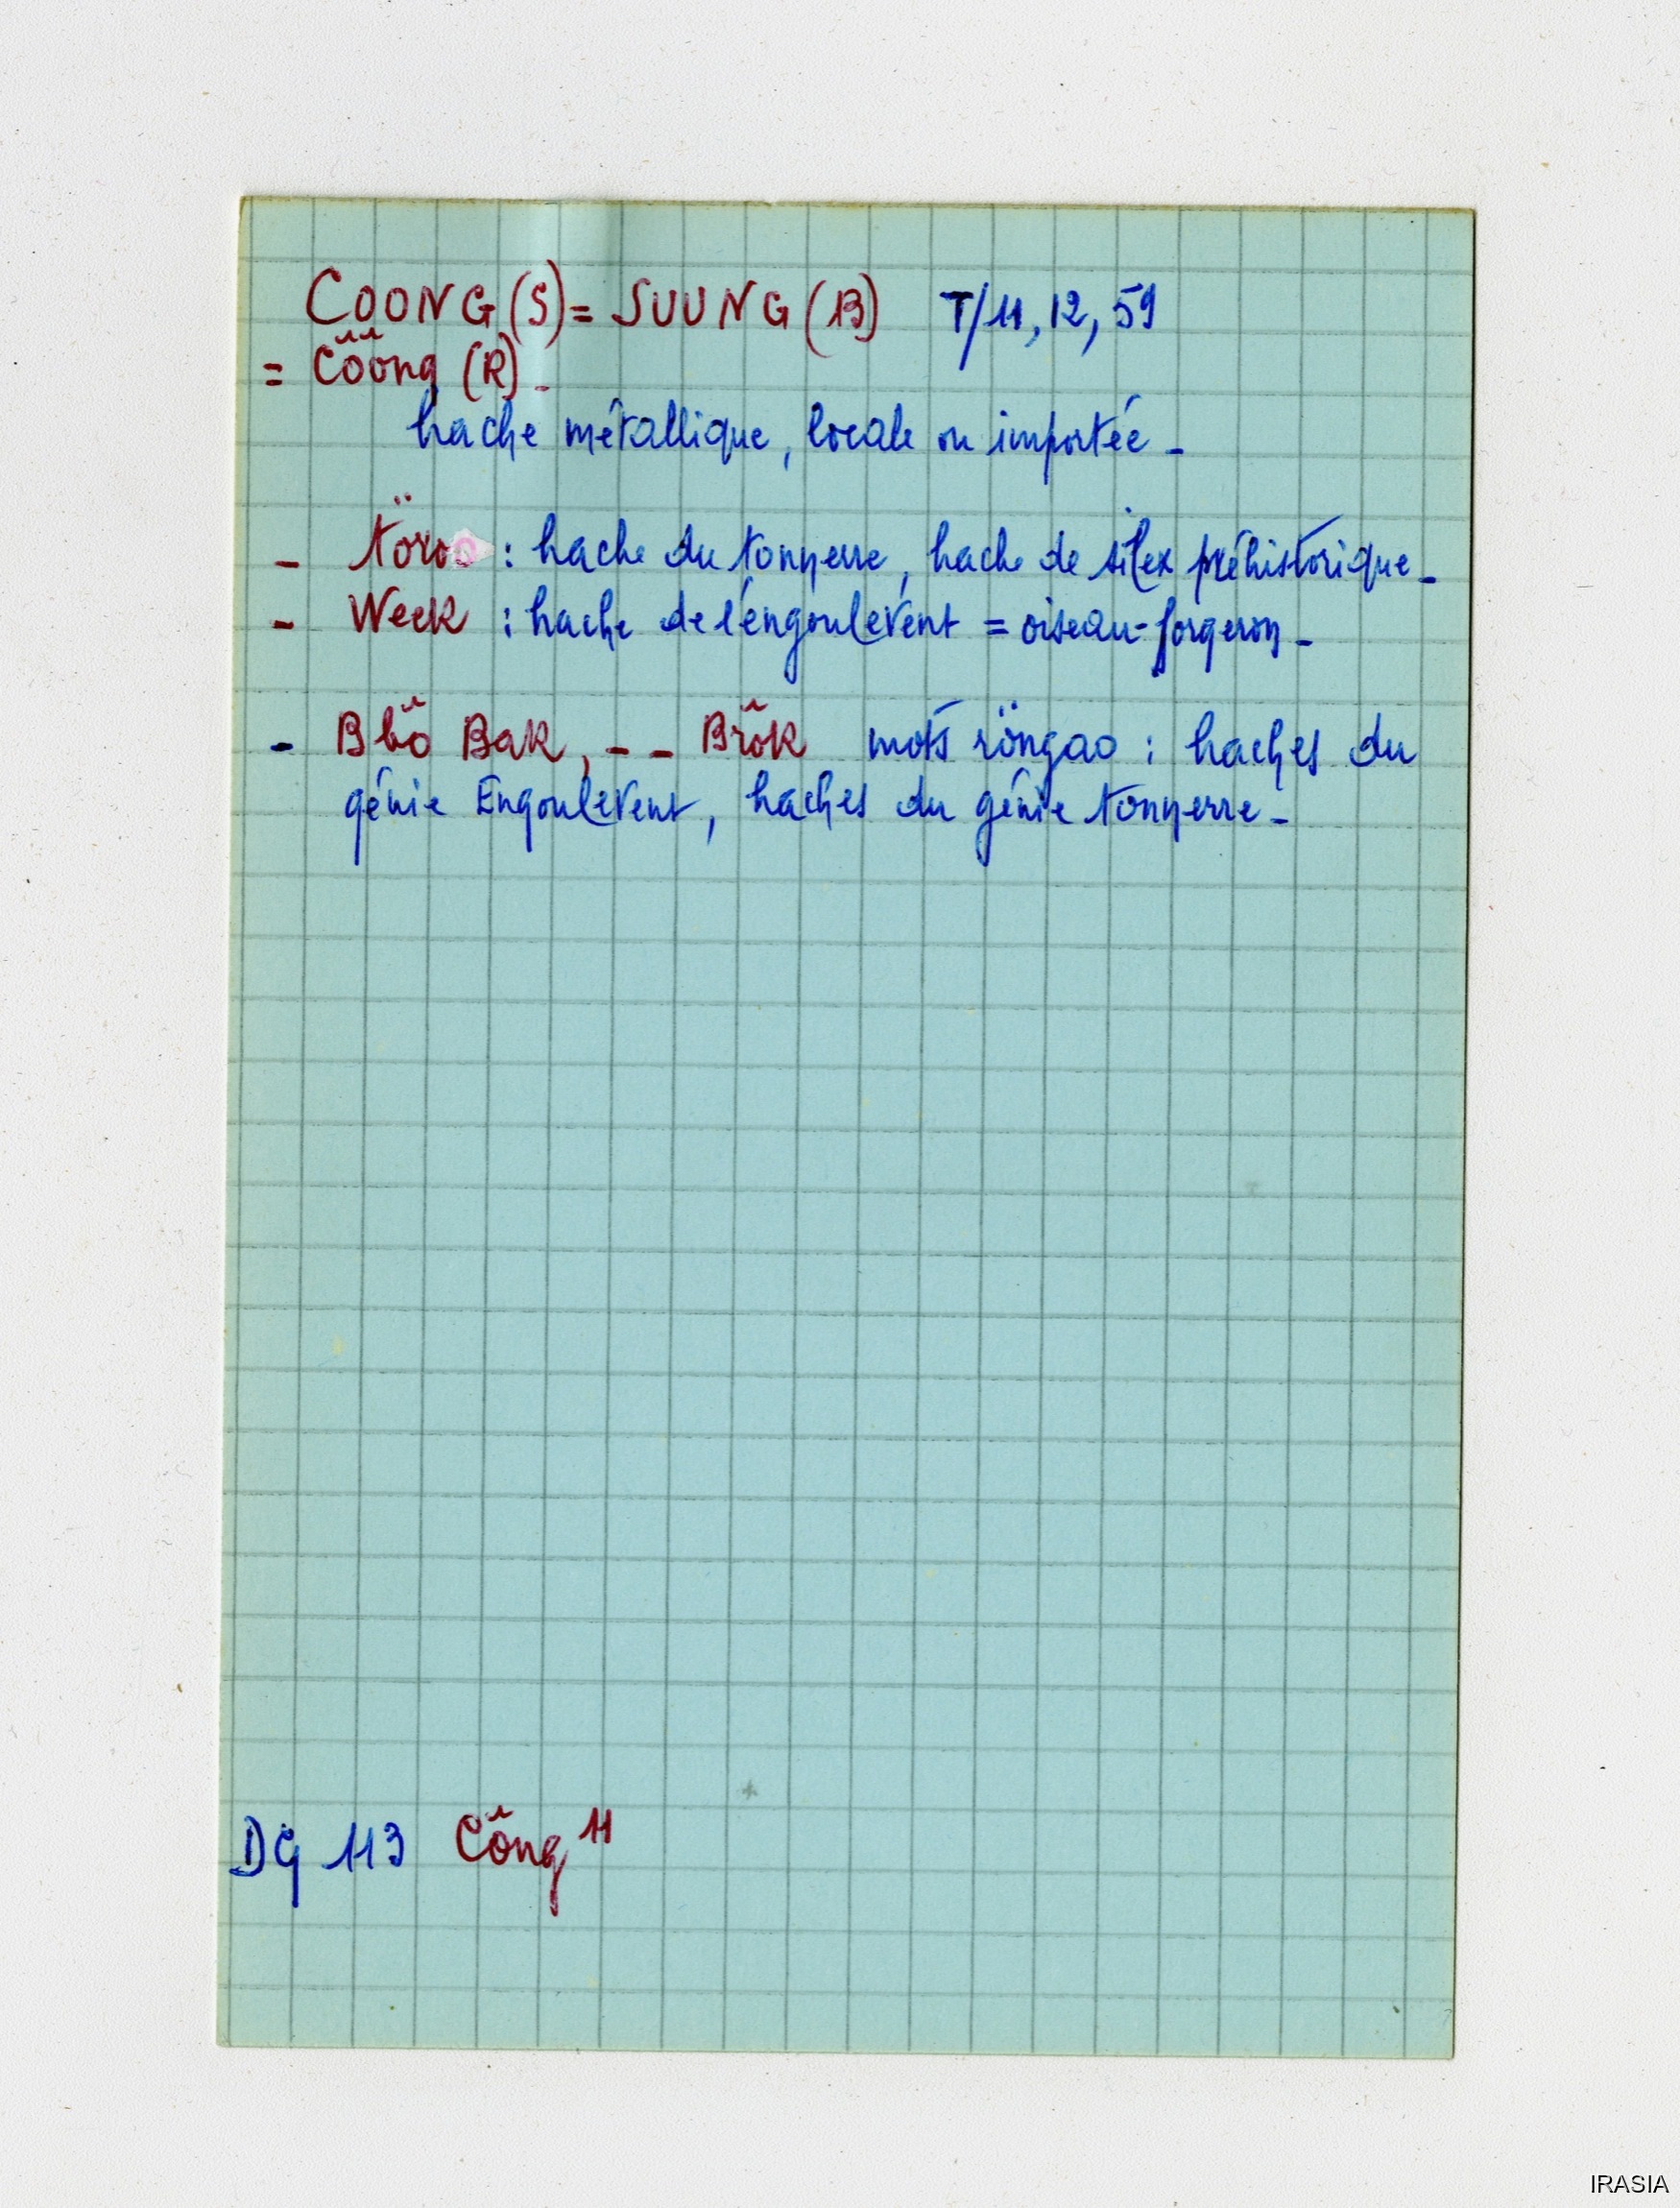 COONG (S) = SUUNG (B) T/11, 12, 59
= Cỗỗng (R) -
hache métallique, locale ou importée -
- töroo : hache du tonnerre, hache de silex préhistorique -
- Week : hache de l'engoulevent = oiseau-forgeron -
- Bbỗ Bak, - - Brỗk mots röngao : haches du
génie Engoulevent, haches du génie tonnerre -
DG 113 Cỗng 11
IRASIA